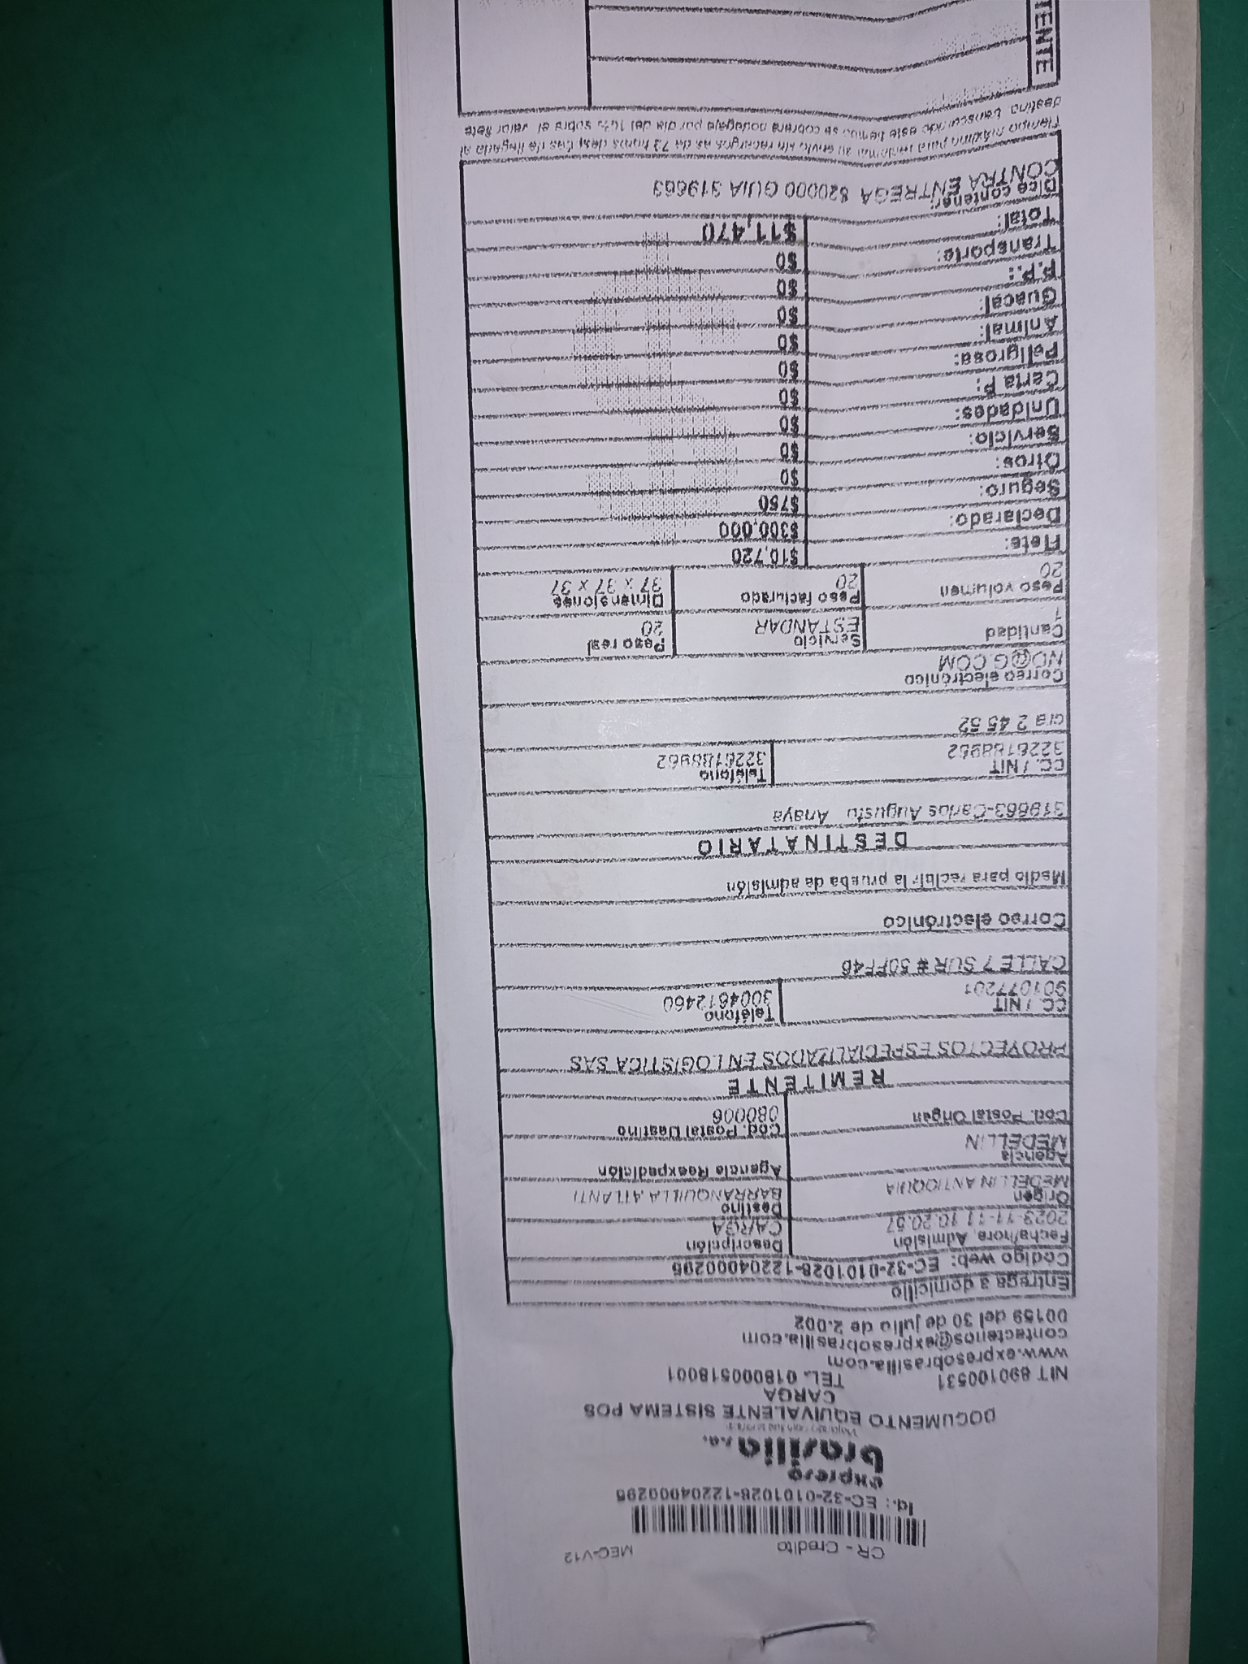 CR - Credito MEC-V12
Id.: EC-32-0101028-12204000295
expreso
brasilia s.a.
DOCUMENTO EQUIVALENTE SISTEMA POS
CARGA
NIT 890100531 TEL. 018000518001
www.expresobrasilia.com
contactenos@expresobrasilia.com
00159 del 30 de julio de 2.002
Entrega a domicilio
Código web: EC-32-0101028-12204000295
Fecha/hora Admisión Descripción
2023-11-11 10:20:57 CARGA
Origen Destino
MEDELLIN ANTIOQUIA BARRANQUILLA ATLANTI
Agencia Agencia Reexpedición
MEDELLIN
Cod. Postal Origen Cod. Postal Destino
080006
REMITENTE
PROYECTOS ESPECIALIZADOS EN LOGISTICA SAS
CC. / NIT Teléfono
901077201 3004612460
CALLE 7 SUR # 50FF46
Correo electrónico
Medio para recibir la prueba de admisión
DESTINATARIO
319663-Carlos Augusto Anaya
CC. / NIT Teléfono
3226188962 3226188962
cra 2 45 52
Correo electrónico
NO@G.COM
Cantidad Servicio Peso real
1 ESTANDAR 20
Peso volumen Peso facturado Dimensiones
20 20 37 x 37 x 37
Flete: $10,720
Declarado: $300,000
Seguro: $750
Otros: $0
Servicio: $0
Unidades: $0
Carta P: $0
Peligrosa: $0
Animal: $0
Guacal: $0
P.P.: $0
Transporte: $0
Total: $11,470
Dice contener:
CONTRA ENTREGA $20000 GUIA 319663
Tiempo máximo para reclamar su envío sin recargos es de 72 horas después de llegada al
destino transcurrido este tiempo se cobrara bodegaje por día del 10% sobre el valor flete
TENTE